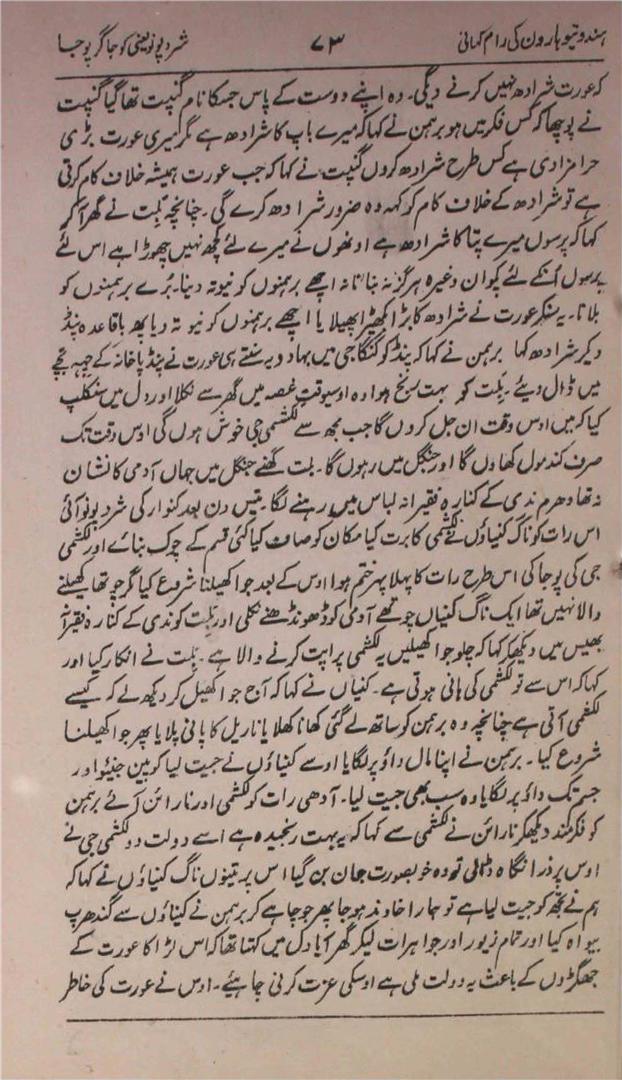 ہندو تیوہارون کی رام کہانی ۷۳ شرد پونو یعنی کوجاگر پوجا
کہ عورت شرادھ نہیں کرنے دیگی۔ وہ اپنے دوست کے پاس جسکا نام گنپت تھا گیا گنپت
نے پوچھا کہ کس فکر میں ہو برہمن نے کہا کہ میرے باپ کا شرادھ ہے مگر میری عورت بڑی
حرامزادی ہے کس طرح شرادھ کروں گنپت نے کہا کہ جب عورت ہمیشہ خلاف کام کرتی
ہے تو شرادھ کے خلاف کام کو کہہ وہ ضرور شرادھ کرے گی۔ چنانچہ بَلِت نے گھر آکر
کہا کہ پرسوں میرے پتا کا شرادھ ہے اونھوں نے میرے لئے کچھ نہیں چھوڑا ہے اس لئے
پرسوں اُنکے لئے پکوان وغیرہ ہرگز نہ بنانا نہ اچھے برہمنوں کو نیوتہ دینا۔ بُرے برہمنوں کو
بلانا۔ یہ سنکر عورت نے شرادھ کا بڑا بکھیڑا پھیلایا اچھے برہمنوں کو نیوتہ دیا پھر باقاعدہ پنڈ
دیکر شرادھ کہا برہمن نے کہا کہ پنڈ کو گنگا جی میں بہا دو یہ سنتے ہی عورت نے پنڈ پاخانہ کے
میں ڈال دیئے بَلِت کو بہت رنج ہوا وہ اوسیوقت غصہ میں گھر سے نکلا اور دل میں سنکلپ
کیا کہ میں اوس وقت ان جل کروں گا جب مجھ سے لکشمی جی خوش ہوں گی اوس وقت تک
صرف کند مول کھاوں گا اور جنگل میں رہوں گا۔ بلت گھنے جنگل میں جہاں آدمی کا نشان
نہ تھا دھرم ندی کے کنارہ فقیرانہ لباس میں رہنے لگا۔ تیس دن بعد کنوار کی شرد پونو آئی
اس رات کو ناگ کنیاؤں نے لکشمی کا برت کیا مکان کو صاف کیا کئی قسم کے چوک بنائے اور لکشمی
جی کی پوجا کی اس طرح رات کا پہلا پہر ختم ہوا اوس کے بعد جوا کھیلنا شروع کیا گر چوتھا کھیلنے
والا نہیں تھا ایک ناگ کنیاں چوتھے آدمی کو ڈھونڈھنے نکلی اور بَلِت کو ندی کے کنارہ فقیرانہ
بھیس میں دیکھکر کہا کہ چلو جوا کھیلیں یہ لکشمی پراپت کرنے والا ہے۔ بَلِت نے انکار کیا اور
کہا کہ اس سے تو لکشمی کی ہانی ہوتی ہے۔ کنیاں نے کہا کہ آج جوا کھیل کر دیکھ لے کہ کیسے
لکشمی آتی ہے چنانچہ وہ برہمن کو ساتھ لے گئی کھانا کھلایا ناریل کا پانی پلایا پھر جوا کھیلنا
شروع کیا۔ برہمن نے اپنا مال داؤ پر لگایا اوسے کنیاؤں نے جیت لیا کوپین جنیئو اور
جسم تک داؤ پر لگایا وہ سب بھی جیت لیا۔ آدھی رات کو لکشمی اور نارائن آئے برہمن
کو فکرمند دیکھکر نارائن نے لکشمی سے کہا کہ یہ بہت رنجیدہ ہے اسے دولت دو لکشمی جی نے
اوس پر ذرا نگاہ ڈالی تو وہ خوبصورت جوان بن گیا اس پر تینوں ناگ کنیاؤں نے کہا کہ
ہم نے تجھ کو جیت لیا ہے تو ہمارا خاوند ہو جا پھر جو چاہے کر برہمن نے کنیاؤں سے گندھرپ
بیواہ کیا اور تمام زیور اور جواہرات لیکر گھر آیا دل میں کہتا تھا کہ اس لڑاکا عورت کے
جھگڑوں کے باعث یہ دولت ملی ہے اوسکی عزت کرنی چاہیئے۔ اوس نے عورت کی خاطر